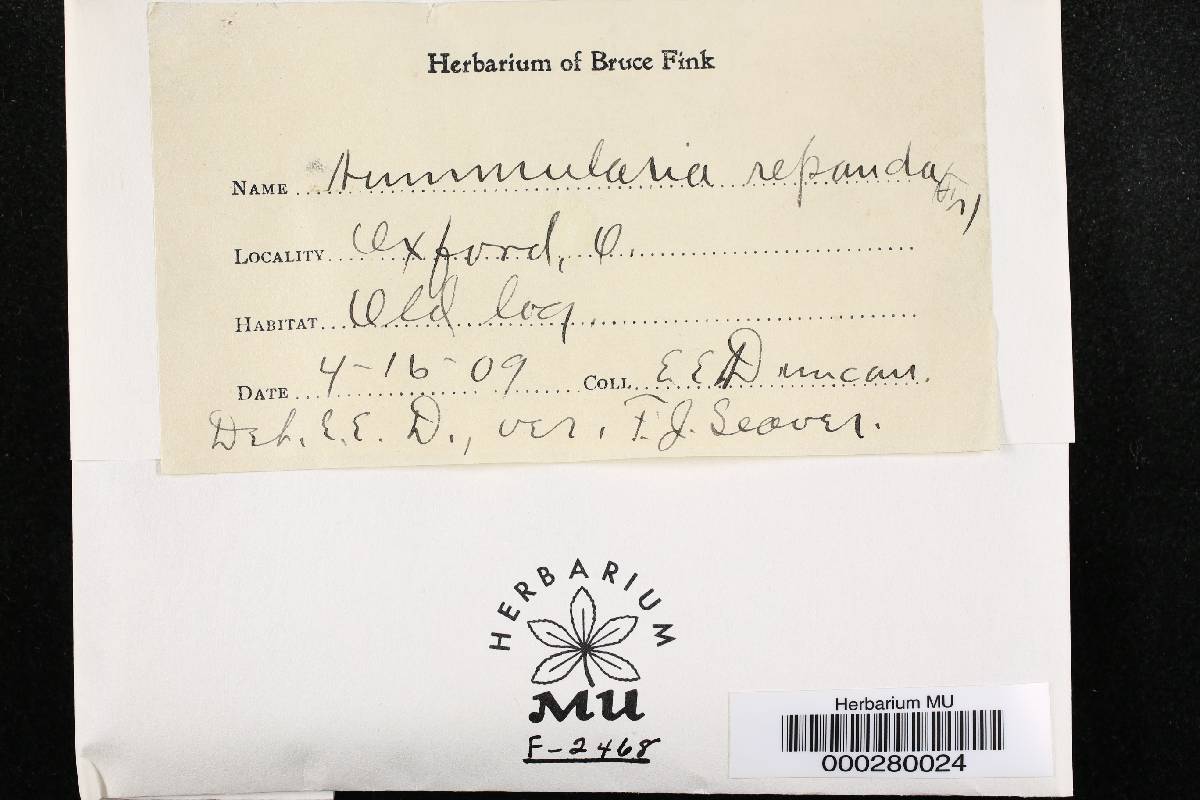 Herbarium of Bruce Fink
NAME Nummularia repanda (Fr)
LOCALITY Oxford, O.
HABITAT Old log.
DATE 4-16-09 COLL E E Duncan.
Det. E. E. D., ver. F. J. Seaver.
HERBARIUM
MU
F-2468
Herbarium MU
000280024